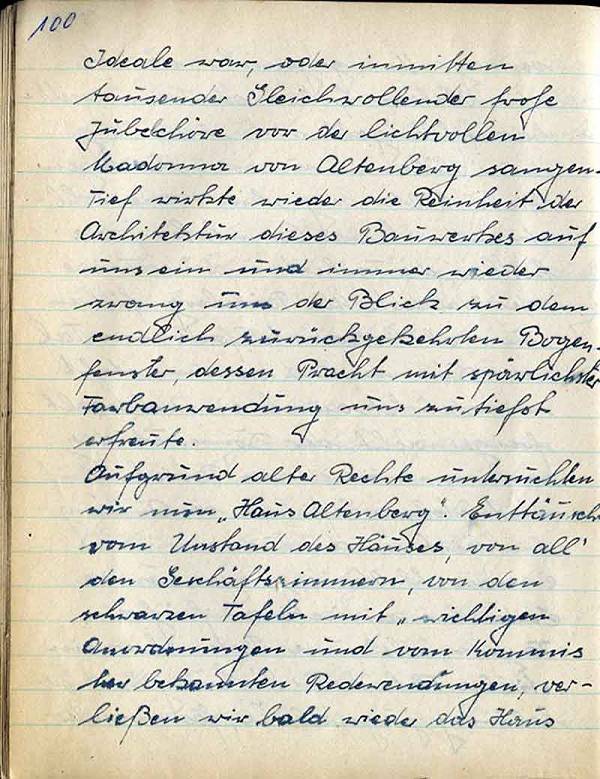 100
Ideale war, oder inmitten
tausender Gleichwollender frohe
Jubelchöre vor der lichtvollen
Madonna von Altenberg sangen.
Tief wirkte wieder die Reinheit der
Architektur dieses Bauwerkes auf
uns ein und immer wieder
zwang uns der Blick zu dem
endlich zurückgekehrten Bogen-
fenster, dessen Pracht mit spärlichster
Farbanwendung uns zutiefst
erfreute.
Aufgrund alter Rechte untersuchten
wir nun „Haus Altenberg". Enttäuscht
vom Umstand des Hauses, von all'
den Geschäftszimmern, von den
schwarzen Tafeln mit „wichtigen
Anordnungen und vom Kommis
her bekannten Redewendungen, ver-
ließen wir bald wieder das Haus